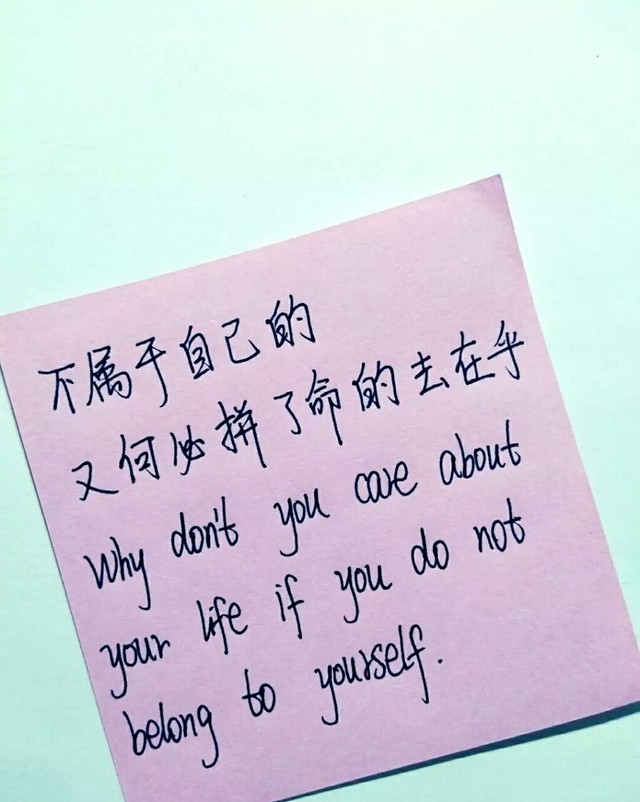 不属于自己的
又何必拼了命的去在乎
Why don't you care about
your life if you do not
belong to yourself.